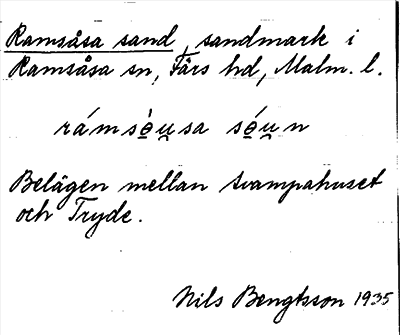 Ramsåsa sand, sandmark i
Ramsåsa sn, Färs hd, Malm. l.
rámsò̱u̯sa só̱u̯n
Belägen mellan Svampahuset
och Tryde.
Nils Bengtsson 1935